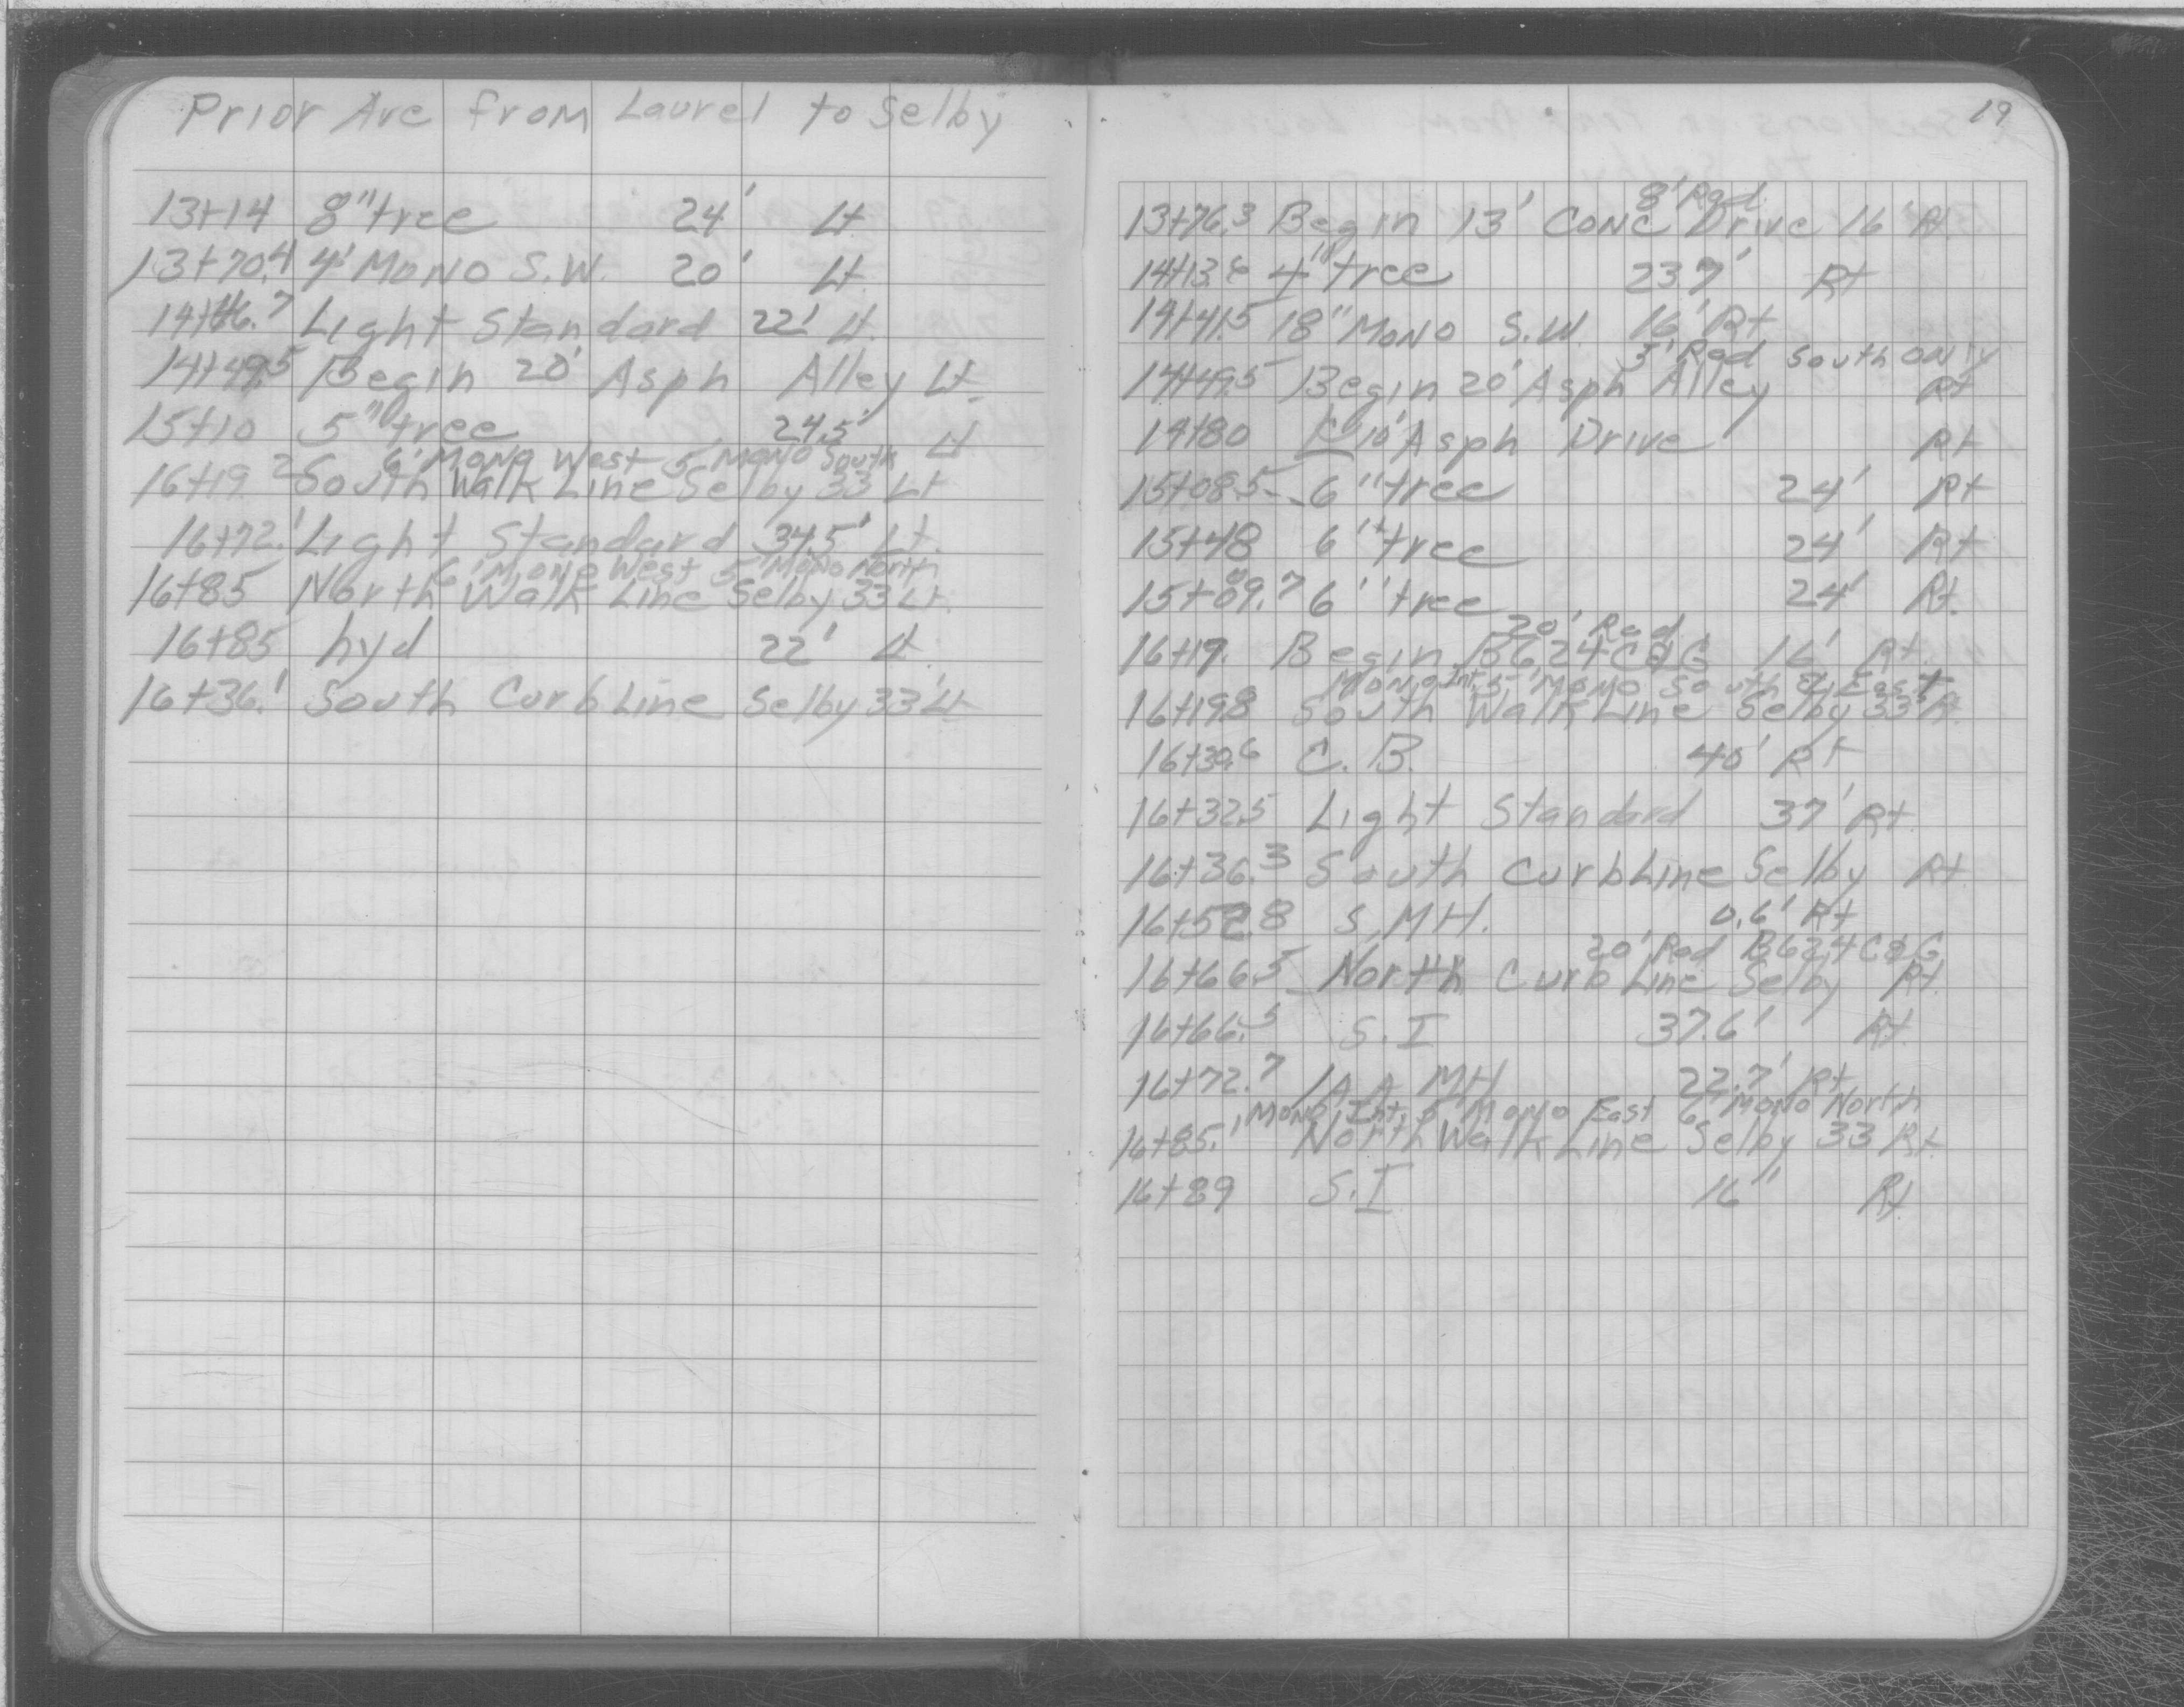 Prior Ave from Laurel to Selby
13+14 8" tree 24' Lt
13+70.4 4' Mono S.W. 20' Lt.
Light Standard 22' Lt.
14+49.5 Begin 20' Asph Alley Lt.
15+10 5" tree 24.5' Lt
6' Mono West 5' Mono South
16+19.2 South Walk Line Selby 33' Lt
16+72.1 Light Standard 34.5' Lt.
6' Mono West 5' Mono North
16+85 North Walk Line Selby 33' Lt.
16+85 hyd 22' Lt.
16+36.1 South Curb Line Selby 33' Lt
19
8' Rad.
13+76.3 Begin 13' Conc Drive 16' Rt.
4" tree 23.7' Rt
14+41.5 18" Mono S.W. 16' Rt
3' Rad South only
14+49.5 Begin 20' Asph Alley Rt
14+80 10' Asph Drive Rt
15+08.5 6" tree 24' Rt
15+48 6" tree 24' Rt
6" tree 24' Rt.
20' Rad
16+19. Begin B624 C&G 16' Rt.
Mono Int. 5' Mono South & East
16+19.8 South Walk Line Selby 33' Rt.
16+30.6 C.B. 40' Rt
16+32.5 Light Standard 37' Rt.
16+36.3 South Curb Line Selby Rt
S.MH. 0.6' Rt
20' Rad B624 C&G
16+66.5 North Curb Line Selby Rt.
16+66.5 S.I 37.6' Rt.
16+72.7 MH 22.7' Rt
Mono Int. 5' Mono East 6' Mono North
16+85.1 North Walk Line Selby 33 Rt.
16+89 S.I 16" Rt.